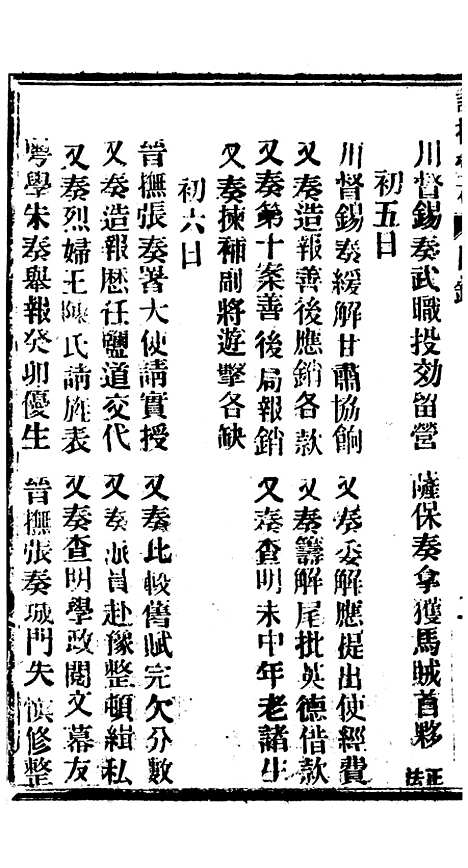 川督錫奏武職投効留營　薩保奏拿獲馬賊首夥正法
初五日
川督錫奏緩解甘肅協餉　又奏委解應提出使經費
又奏造報善後應銷各款　又奏籌解尾批英德借款
又奏第十案善後局報銷　又奏查明未中年老諸生
又奏揀補副將遊擊各缺
初六日
晉撫張奏署大使請實授　又奏比較舊賦完欠分數
又奏造報歷任鹽道交代　又奏派員赴豫整頓緝私
又奏烈婦王陳氏請旌表　又奏查明學政閱文幕友
粵學朱奏舉報癸卯優生　晉撫張奏城門失慎修整